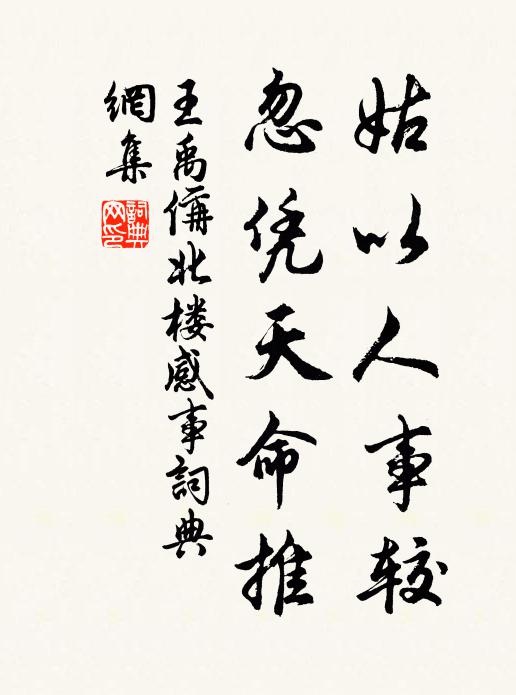 姑以人事较
忽凭天命推
王禹偁北楼感事詞典
網集
詞典
网印